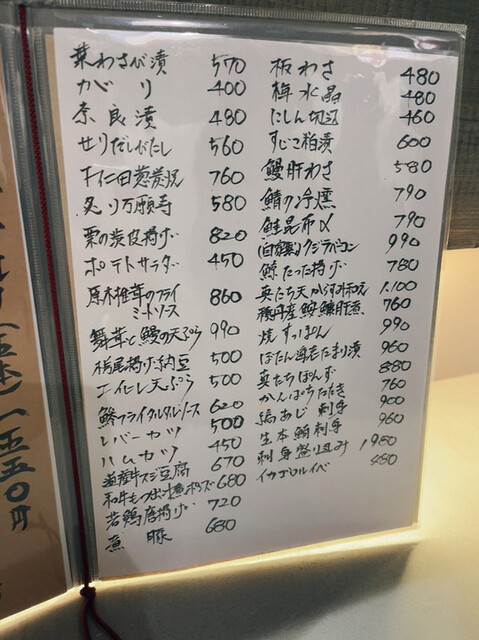 葉わさび漬 570
ガリ 400
奈良漬 480
せりだしびたし 560
下仁田葱炭焼 760
炙り万願寺 580
栗の渋皮揚げ 820
ポテトサラダ 450
原木椎茸のフライ
ミートソース 860
舞茸と鰻の天ぷら 990
栃尾揚げ納豆 500
エイヒレ天ぷら 500
鯵フライタルタルソース 620
レバーカツ 500
ハムカツ 450
牛スジ豆腐 670
和牛もつ出汁煮 680
若鶏唐揚げ 720
煮豚 680
板わさ 480
梅水晶 480
にしん切込 460
すじこ粕漬 600
鰻肝わさ 580
鯖の冷燻 790
鮭昆布〆 790
(自家製)クジラベーコン 990
鯨たつた揚げ 780
真たち天からすみ和え 1,100
鮟鱇肝煮 760
焼すっぽん 990
ぼたん海老たまり漬 960
真たちぽんず 880
かんぱちたたき 760
縞あじ刺身 900
生本鮪刺身 960
刺身盛り込み 1,980
イカゴロルイベ 480
一五五〇円